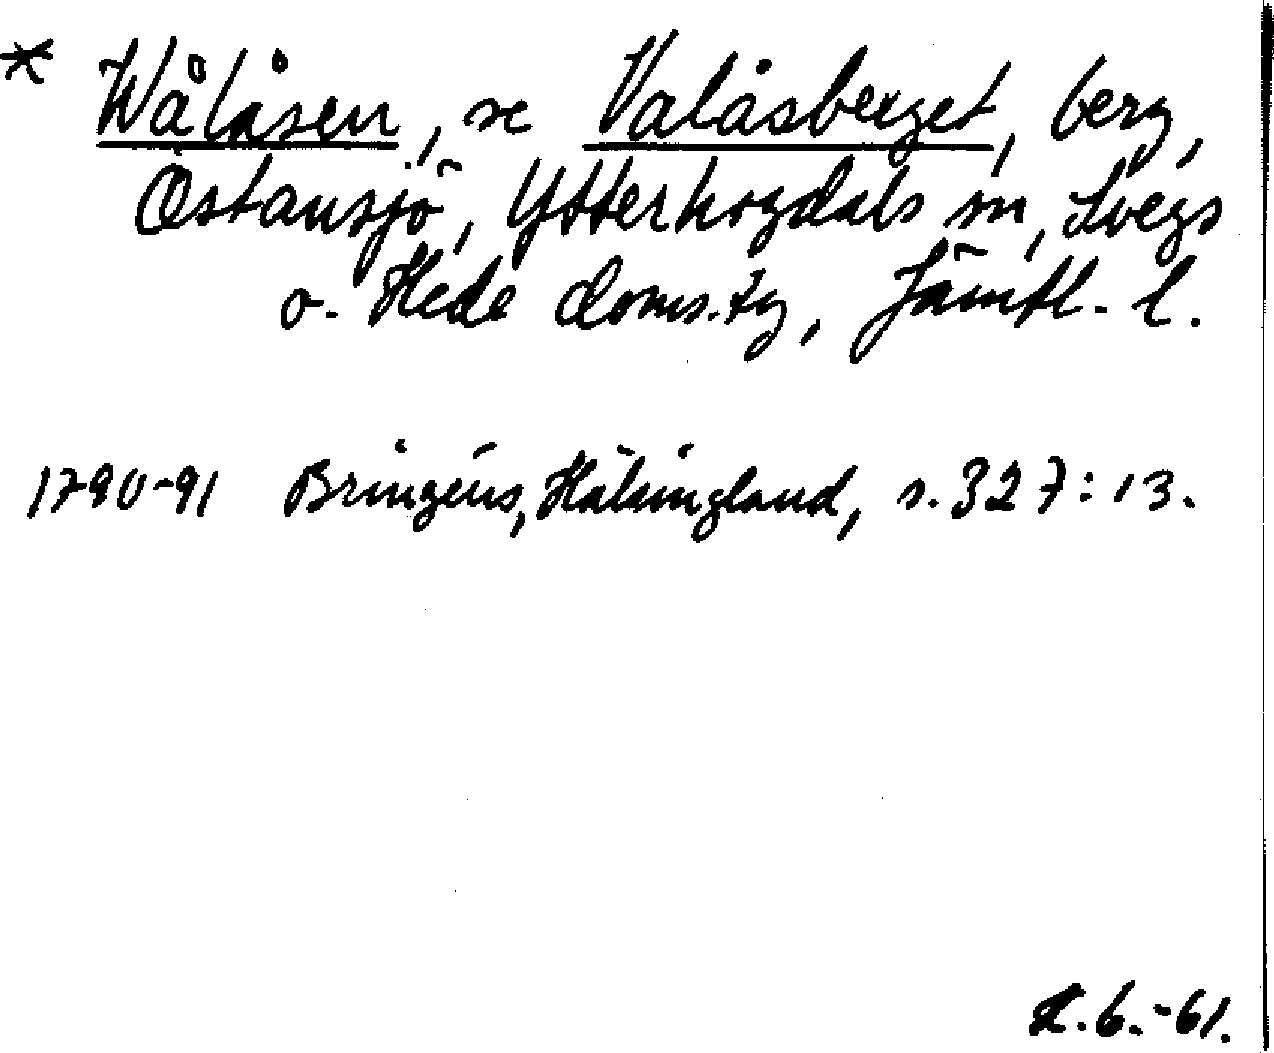 * Wålåsen, se Valåsberget, berg,
Östansjö, Ytterhogdals sn, Svegs
o. Hede doms.tg, Jämtl. l.
1790-91 Bringéus, Hälsingland, s. 327:13.
6.-61.